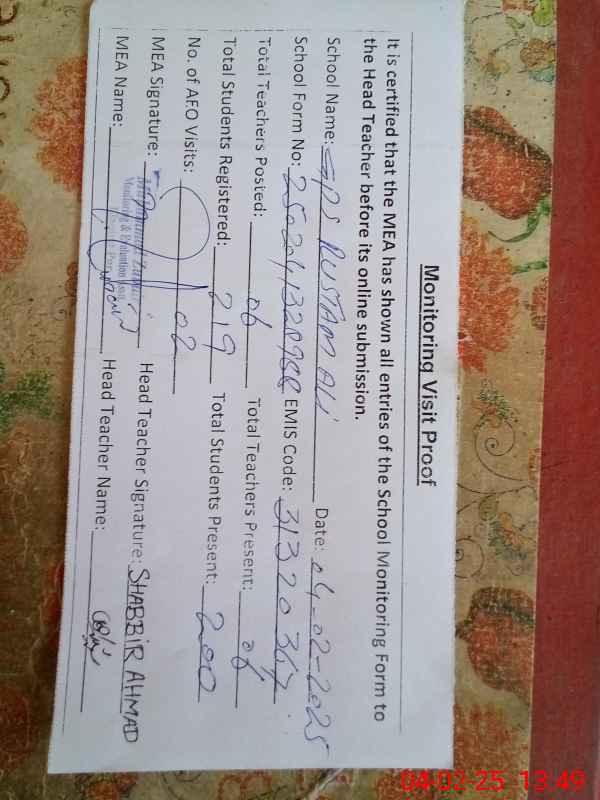 Monitoring Visit Proof
It is certified that the MEA has shown all entries of the School Monitoring Form to
the Head Teacher before its online submission.
School Name: GPS RUSTAM ALI Date: 04-02-2025
School Form No: EMIS Code: 31320367
Total Teachers Posted: 06 Total Teachers Present: 06
Total Students Registered: 219 Total Students Present: 200
No. of AEO Visits: 02
MEA Signature: Head Teacher Signature: SHABBIR AHMAD
Monitoring & Evaluation
MEA Name: Head Teacher Name:
04-02-25 13:49